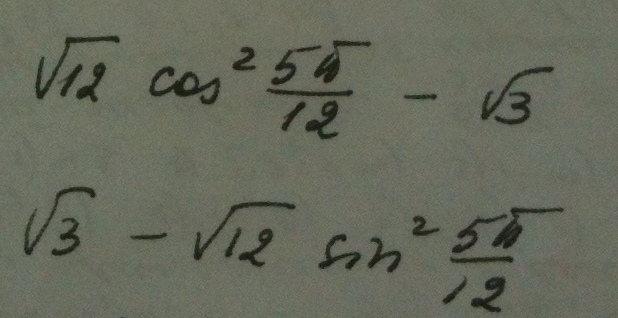 √12 cos² 5π/12 − √3
√3 − √12 sin² 5π/12